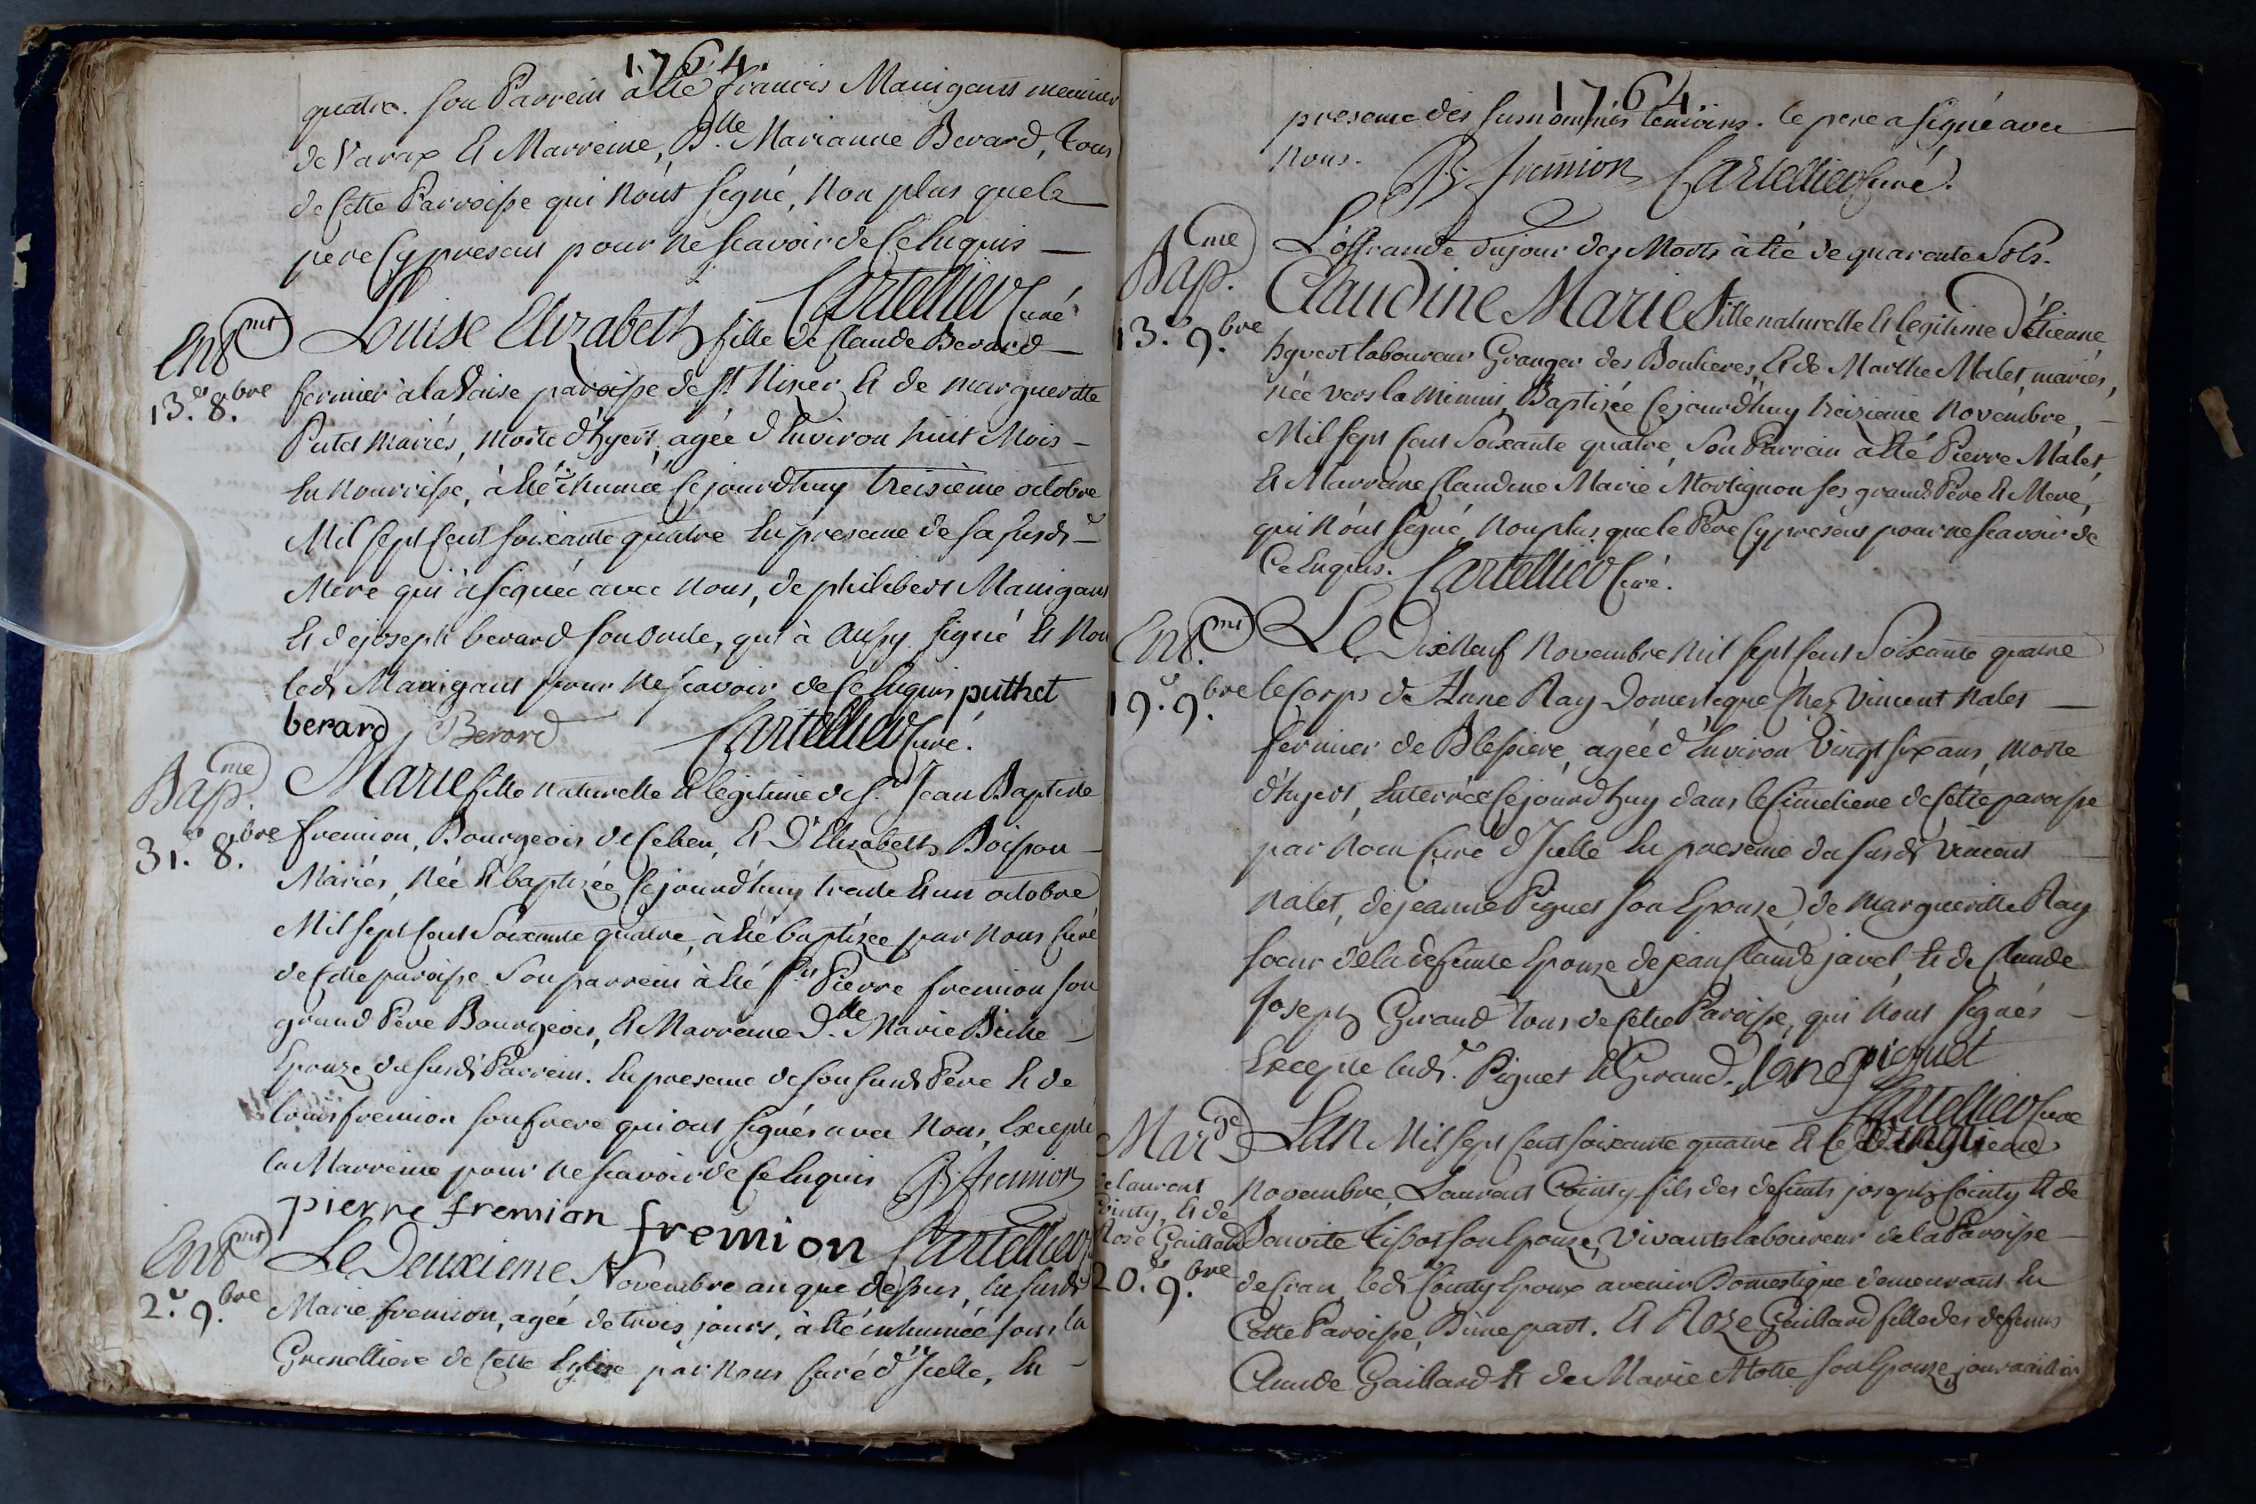 1764.
quatre. son Parrein à Eté francois Manigant meunier
de Varax Et Marreine, D.lle Marianne Berard, Tous
de Cette Parroisse qui N'ont signé, Non plus que le
pere Cy present pour Ne scavoir de Ce Enquis
Cartellier Curé
Ent.mt
13.e 8.bre
Louise Elizabeth fille de Claude Berard
fermier à la paroisse de st Nizier Et de margueritte
Putet mariés, morte d'hyert, agée d'Environ huit Mois
En Nourrisse, à Eté inhumée Cejourdhuy treisième octobre
Mil sept Cent soixante quatre En presence de sa susd.
Mere qui à signée avec Nous, de philibert Manigant
Et de joseph berard son oncle, qui à Aussy signé Et Non
led. Manigant pour Ne scavoir de Ce Enquis puthet
berard Berard Cartellier Curé.
Bap.me
31.e 8.bre
Marie fille naturelle Et legitime de s.r Jean Baptiste
fremion, Bourgeois de Ce lieu, Et D.e Elisabeth Boisson
Mariés, Née Et baptizée Cejourdhuy trente Et un octobre
Mil sept Cent Soixante quatre, à Eté baptizée par Nous Curé
de Cette paroisse. Son parrein à Eté s.r Pierre fremion son
grand Pere Bourgeois, Et Marreine D.lle Marie
Epouze du susd. Parrein. En presence de son susd. Pere Et de
Louis fremion son frere qui ont signés avec Nous, Excepté
la Marreine pour Ne scavoir de Ce Enquis B. fremion
pierre fremion fremion Cartellier
Ent.mt
2.e 9.bre
Le Deuxieme Novembre an que dessus, la susd.
Marie fremion, agée de trois jours, à Eté inhumée sous la
Grenettiere de Cette Eglise par Nous Curé d'Icelle, En
1764.
presence des susnommés temoins. le pere a signé avec
Nous. B. fremion Cartellier Curé.
L'offrande du jour des Morts à Eté de quarante Sols.
Bap.me
13.e 9.bre
Claudine Marie fille naturelle Et legitime d'Etienne
hyvert laboureur Granger des Boulieres, Et de Marthe Malet, mariés,
née vers la Minuit, Baptizée Cejourd'huy treizieme Novembre,
Mil sept Cent Soixante quatre, Son Parrein à Eté Pierre Malet,
Et Marreine Claudine Marie Mortignon ses grands Pere Et Mere,
qui N'ont signé, Non plus que le Pere Cy present pour ne scavoir de
Ce Enquis. Cartellier Curé.
Ent.mt
19.e 9.bre
Le Dix Neuf Novembre mil sept Cent Soixante quatre
le Corps de Anne Ray Domestique Chez Vincent Nalet
fermier de Blessiere, agée d'Environ Vingt six ans, morte
d'hyert, Enterrée Cejourd'huy dans le Cimetiere de Cette paroisse
par Nous Curé d'Icelle En presence du susd. Vincent
Nalet, de jeanne Piguet son Epouse, de Margueritte Ray
soeur de la defunte Epouze de jean Claude javel, Et de Claude
joseph Giraud tous de Cette Paroisse, qui N'ont signés
Excepté lad. Piguet Et Giraud. Jane piguet
Cartellier Curé
Mar.ge
de laurent
Cointy, Et de
Roze Gaillard
20.e 9.bre
L'an Mil sept Cent soixante quatre Et le Vingtieme
Novembre, Laurent Cointy fils des defunts joseph Cointy Et de
Benoite Tissot son Epouze, Vivants laboureur de la Paroisse
de Cran, led. Cointy Epoux avenir Domestique demeurant En
Cette Paroisse, D'une part. Et Roze Gaillard fille des defunts
Claude Gaillard Et de Marie Motte son Epouze,